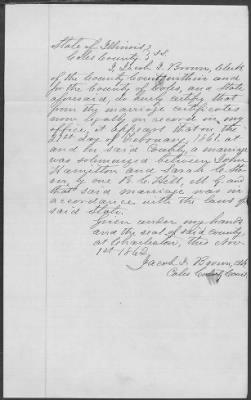 State of Illinois,
Coles County, ss.
I, Jacob I. Brown, Clerk
of the County Court within and
for the County of Coles, and State
aforesaid, do hereby certify that
from the marriage certificates
now legally on record in my
office, it appears that on the
21st day of February 1861 at
and in said County a marriage
was solemnized between John
Hamilton and Sarah C.
by one R. C. Hill, M G and
that said marriage was in
accordance with the laws of
said State.
Given under my hand
and the seal of said county
at Charleston, this Nov
1st 1862
Jacob I. Brown, Clk
Coles County Court